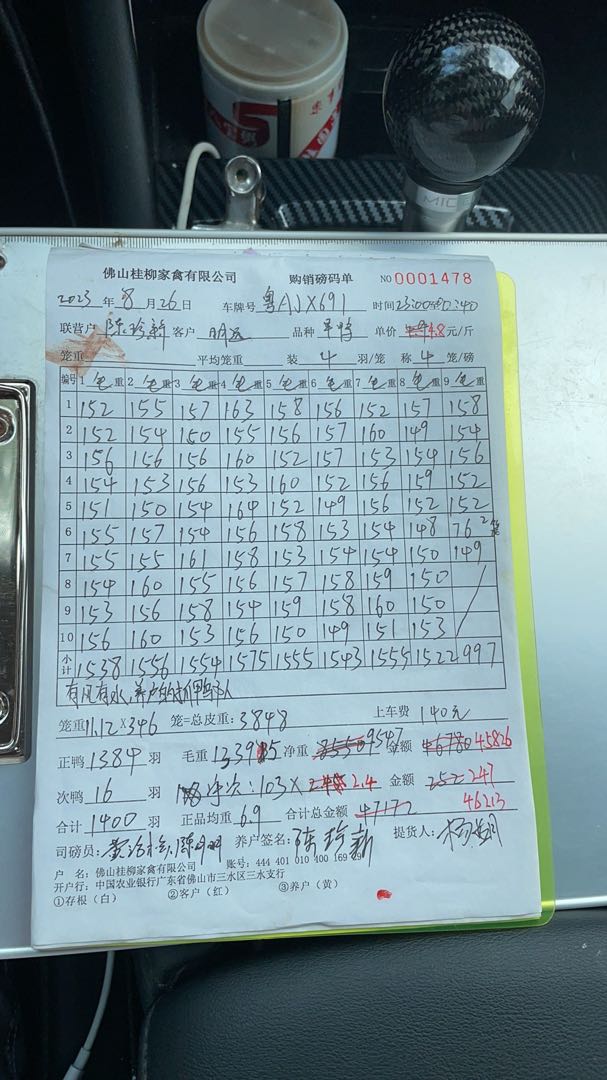 佛山桂柳家禽有限公司 购销磅码单 NO 0001478
2023 年 8 月 26 日 车牌号 粤AJX691 时间 23:00
联营户 陈珍新 客户 明运 品种 单价 4.8 元/斤
笼重 平均笼重 装 4 羽/笼 称 4 笼/磅
编号 1 毛重 2 毛重 3 毛重 4 毛重 5 毛重 6 毛重 7 毛重 8 毛重 9 毛重
1 152 155 157 163 158 156 152 157 158
2 152 154 150 155 156 157 160 149 154
3 156 156 156 160 152 157 153 154 156
4 154 153 156 153 160 152 156 159 152
5 151 150 154 164 152 149 156 152 152
6 155 157 154 156 158 153 154 148 76 2笼
7 155 155 161 158 153 154 154 150 149
8 154 160 155 156 157 158 159 150
9 153 156 158 154 159 158 160 150
10 156 160 153 156 150 149 151 153
小计 1538 1556 1554 1575 1555 1543 1555 1522 997
有风有水,养户
笼重 11.12×346 笼=总皮重: 3848 上车费 140元
正鸭 1384 羽 毛重 13395 净重 9547 金额 45826
次鸭 16 羽 次:103× 2.4 金额 247
合计 1400 羽 正品均重 6.9 合计总金额 47172 46213
司磅员: 养户签名: 陈珍新 提货人:
户 名: 佛山桂柳家禽有限公司 账号: 444 401 010 400 169 89
开户行: 中国农业银行广东省佛山市三水区三水支行
①存根(白) ②客户(红) ③养户(黄)